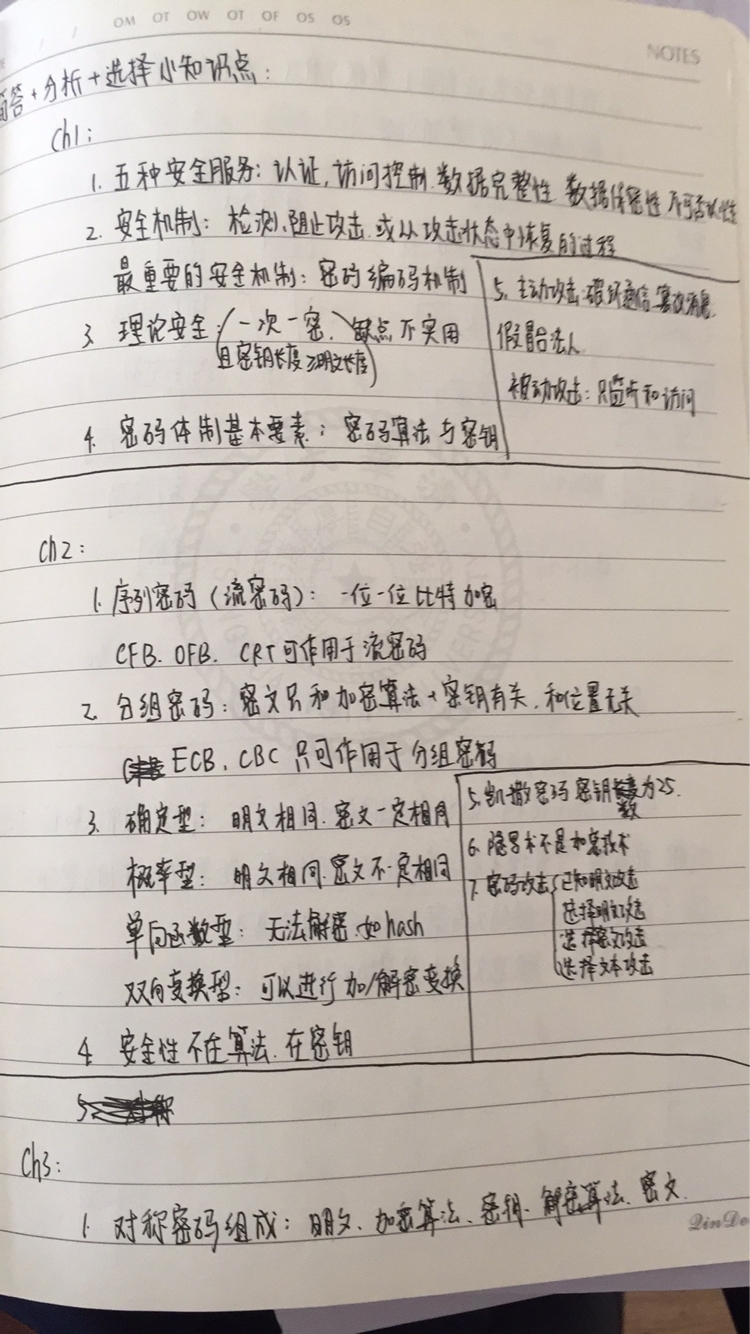 OM OT OW OT OF OS OS
NOTES
简答+分析+选择小知识点:
Ch1:
1. 五种安全服务: 认证, 访问控制. 数据完整性 数据保密性 不可否认性
2. 安全机制: 检测、阻止攻击. 或从攻击状态中恢复的过程
最重要的安全机制: 密码编码机制
3. 理论安全: (一次一密, 缺点 不实用
且密钥长度≥明文长度)
4. 密码体制基本要素: 密码算法与密钥
5. 主动攻击:破坏通信,篡改消息,
假冒合法人.
被动攻击: 只监听和访问
Ch2:
1. 序列密码(流密码): 一位一位比特加密
CFB. OFB. CRT可作用于流密码
2. 分组密码: 密文只和加密算法+密钥有关. 和位置无关
ECB. CBC 只可作用于分组密码
3. 确定型: 明文相同. 密文一定相同
概率型: 明文相同. 密文不一定相同
单向函数型: 无法解密.如hash
双向变换型: 可以进行加/解密变换
4. 安全性不在算法. 在密钥
5. 凯撒密码 密钥数为25.
6. 隐写术不是加密技术
7. 密码攻击{已知明文攻击
选择明文攻击
选择密文攻击
选择文本攻击
5.
Ch3:
1. 对称密码组成: 明文、加密算法、密钥、解密算法、密文.